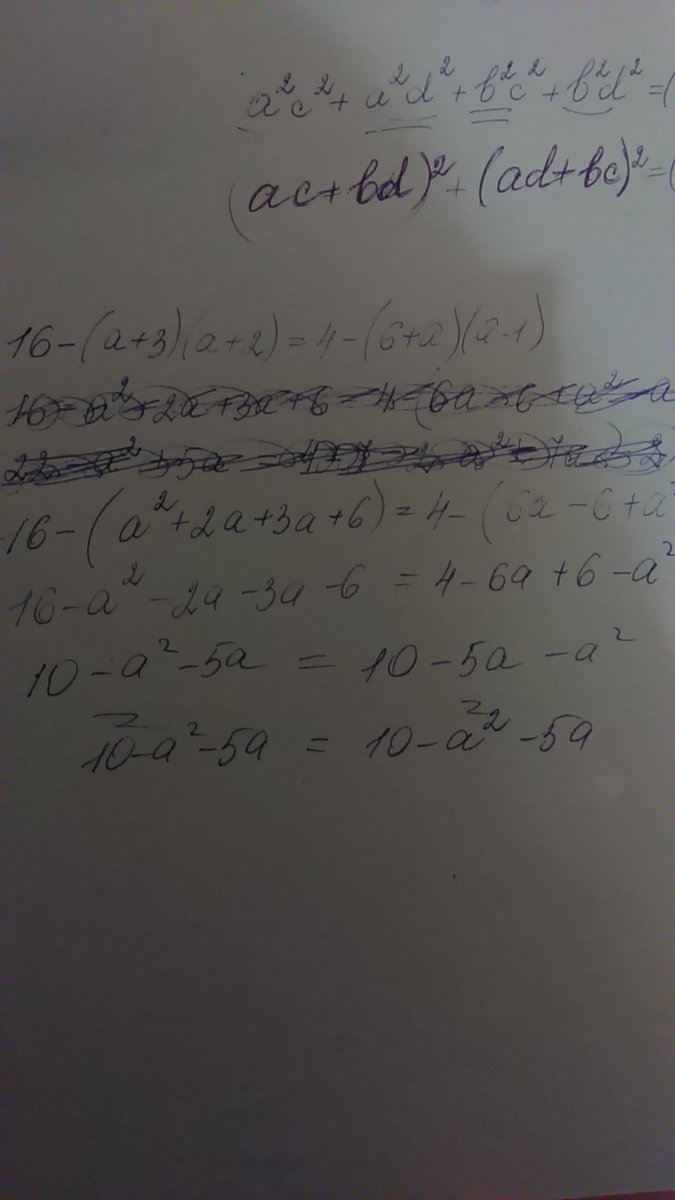 a²c² + a²d² + b²c² + b²d² = (
(ac+bd)² + (ad+bc)² = (
16-(a+3)(a+2) = 4-(6+a)(a-1)
16-(a²+2a+3a+6) = 4-(6a-6+a²
16-a²-2a-3a-6 = 4-6a+6-a²
10-a²-5a = 10-5a-a²
10-a²-5a = 10-a²-5a